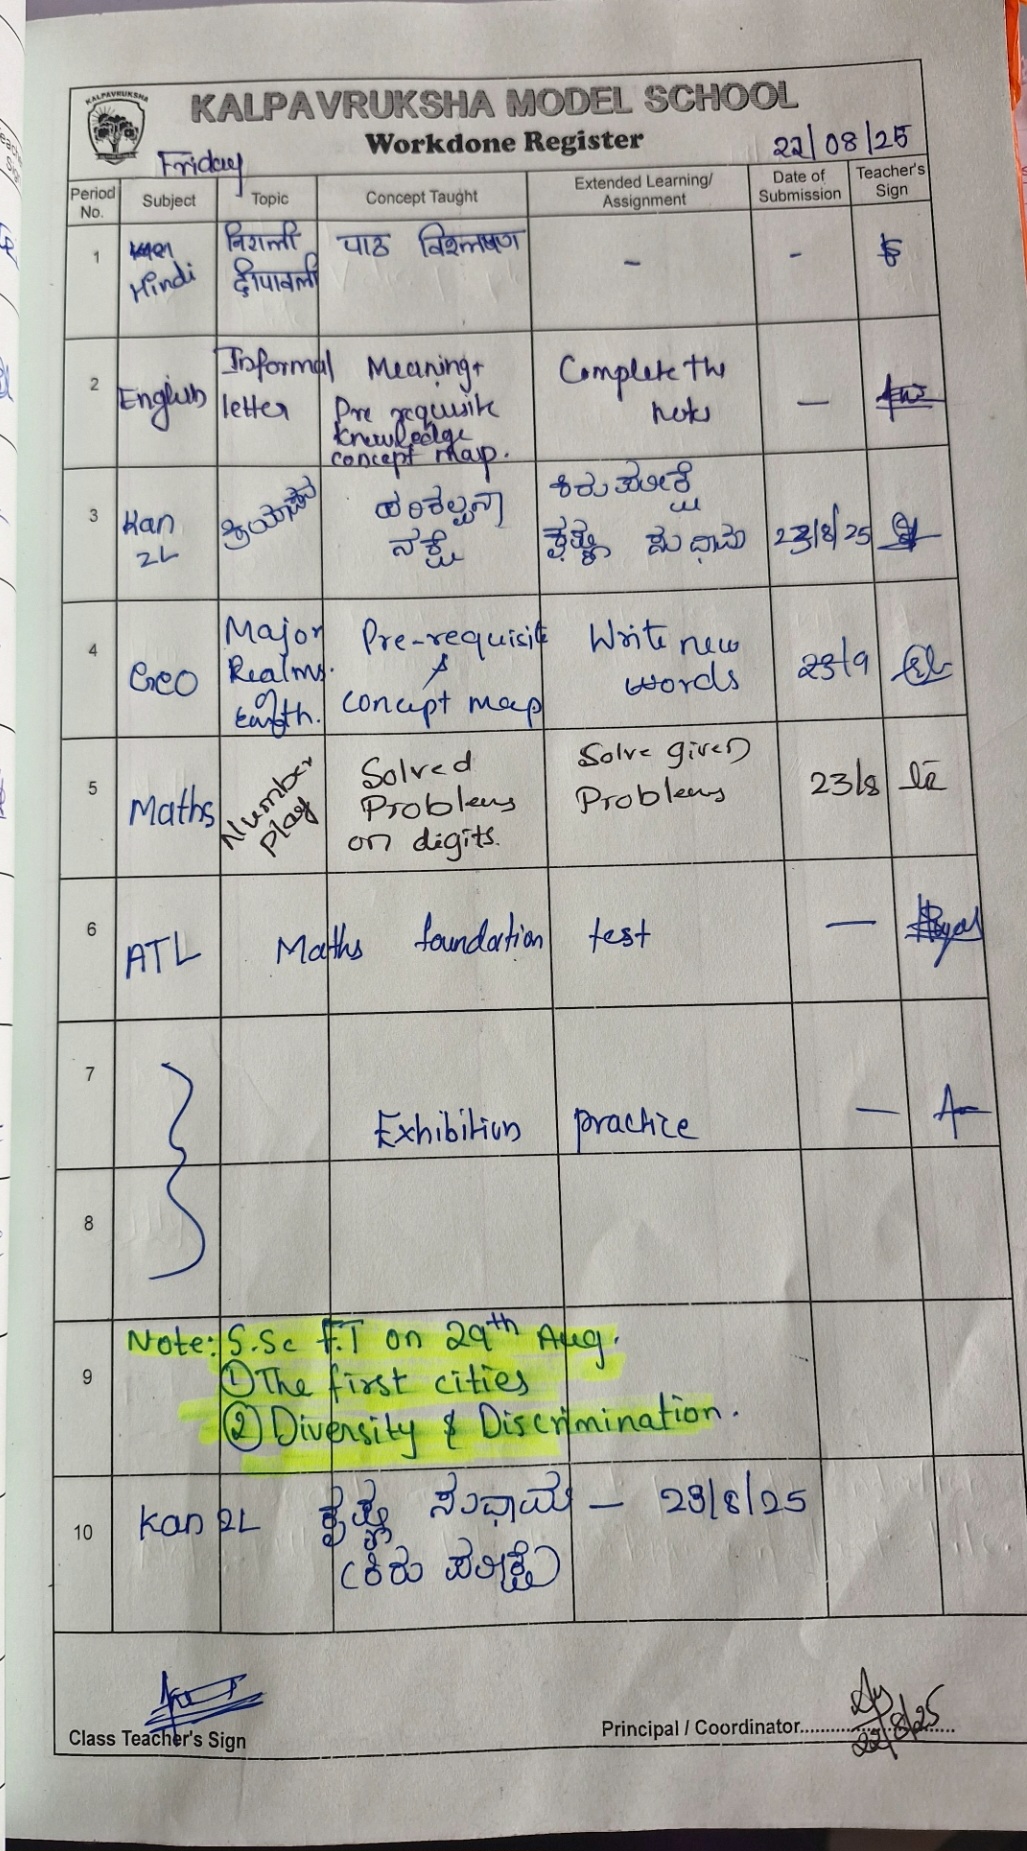 KALPAVRUKSHA
KALPAVRUKSHA MODEL SCHOOL
Workdone Register
Friday
22/08/25
Period No. Subject Topic Concept Taught Extended Learning/ Assignment Date of Submission Teacher's Sign
1 Hindi निराली दीपावली पाठ विश्लषण - -
2 English Informal letter Meaning+ Pre requisite knowledge concept map. Complete the notes —
3 Kan 2L ಕ್ರಿಯಾಪದ ಪರಿಕಲ್ಪನಾ ನಕ್ಷೆ ಕಿರು ಪರೀಕ್ಷೆ ಕೃಷ್ಣ ಸುಧಾಮ 23/8/25
4 Geo Major Realms of Earth. Pre-requisite & concept map Write new words 23/9
5 Maths Number play Solved Problems on digits. Solve given Problems 23/8
6 ATL Maths foundation test —
7 Exhibition practice —
8
9 Note: S.Sc F.T on 29th Aug.
① The first cities
② Diversity & Discrimination.
10 Kan 2L ಕೃಷ್ಣ ಸುಧಾಮ — 23/8/25
(ಕಿರು ಪರೀಕ್ಷೆ)
Class Teacher's Sign
Principal / Coordinator
22/8/25